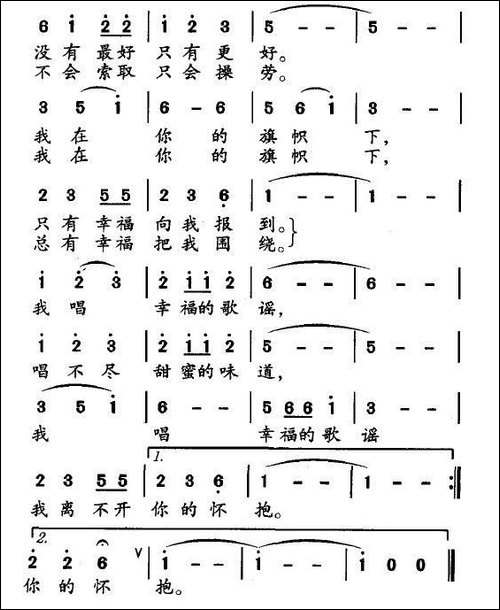 6 i 2 2 | i 2 3 | 5 - - | 5 - - |
没有最好 只有更 好。
不会索取 只会操 劳。
3 5 i | 6 - 6 | 5 6 i | 3 - - |
我在 你的 旗帜 下,
我在 你的 旗帜 下,
2 3 5 5 | 2 3 6 | 1 - - | 1 - - |
只有幸福 向我报 到。
总有幸福 把我围 绕。
i 2 3 | 2 i i 2 | 6 - - | 6 - - |
我唱 幸福的歌 谣,
i 2 3 | 2 i i 2 | 5 - - | 5 - - |
唱不尽 甜蜜的味 道,
3 5 i | 6 - - | 5 6 6 i | 3 - - |
我 唱 幸福的歌 谣
1.
2 3 5 5 | 2 3 6 | 1 - - | 1 - - :|
我离不开 你的怀 抱。
2.
2 2 6 V | i - - | i - - | i 0 0 |
你的怀 抱。